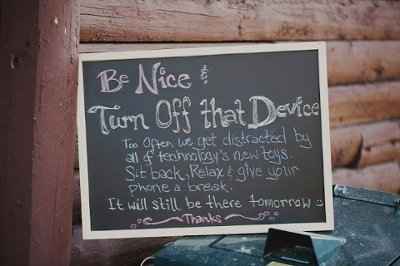 Be Nice &
Turn Off that Device
Too often we get distracted by
all of technology's new toys.
Sit back, Relax & give your
phone a break.
It will still be there tomorrow
Thanks